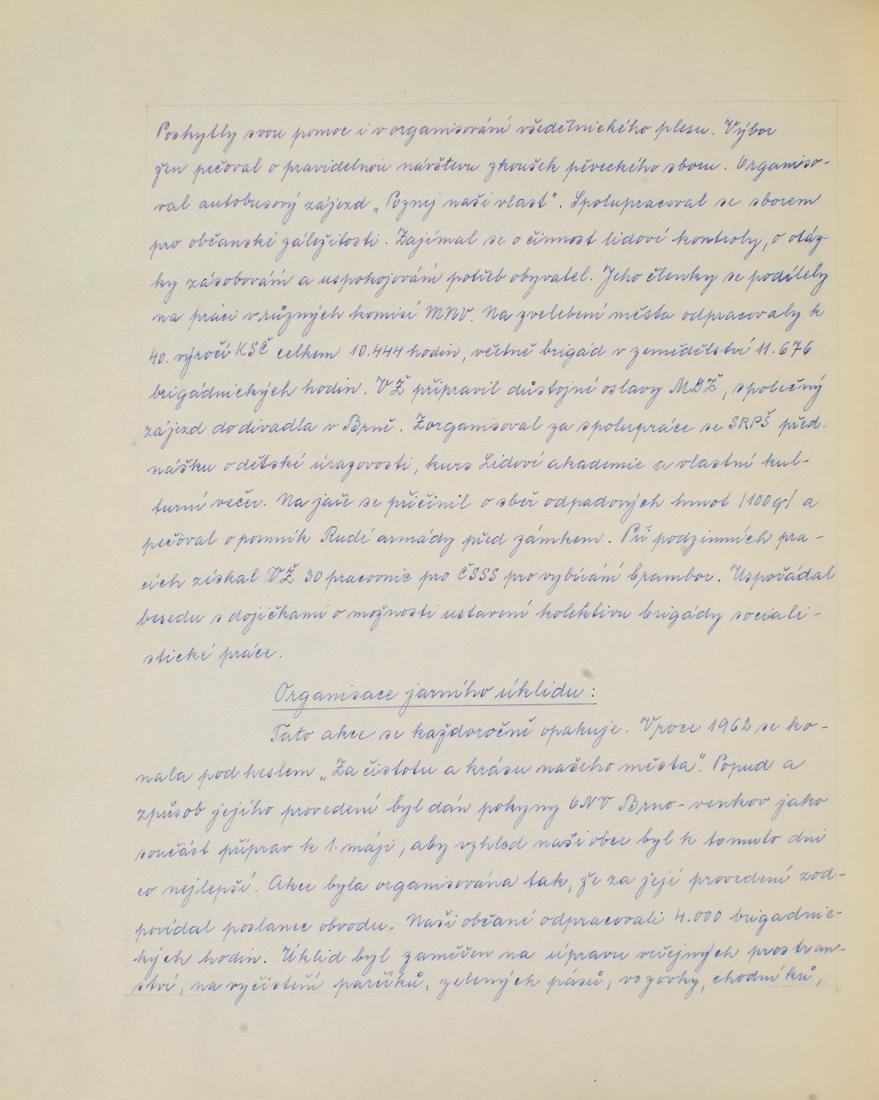 Poskytly svou pomoc i v organisování všedělnického plesu. Výbor
žen pečoval o pravidelnou návštěvu zkoušek pěveckého sboru. Organiso-
val autobusový zájezd „Poznej naši vlast". Spolupracoval se sborem
pro občanské záležitosti. Zajímal se o činnost lidové kontroly, o otáz-
ky zásobování a uspokojování potřeb obyvatel. Jeho členky se podílely
na práci v různých komisí MNV. Na zvelebení města odpracovaly k
40. výročí KSČ celkem 10.444 hodin, včetně brigád v zemědělství 11.676
brigádnických hodin. VŽ připravil důstojné oslavy MDŽ, společný
zájezd do divadla v Brně. Zorganisoval za spolupráce se SRPŠ před-
nášku o dětské úrazovosti, kurs Lidové akademie a vlastní kul-
turní večer. Na jaře se přičinil o sběr odpadových hmot /100q/ a
pečoval o pomník Rudé armády před zámkem. Při podzimních pra-
cích získal VŽ 30 pracovnic pro ČSSS pro vybírání brambor. Uspořádal
besedu s dojičkami o možnosti ustavení kolektivu brigády sociali-
stické práce.
Organisace jarního úklidu:
Tato akce se každoročně opakuje. V roce 1962 se ko-
nala pod heslem „Za čistotu a krásu našeho města". Popud a
způsob jejího provedení byl dán pokyny ONV Brno-venkov jako
součást příprav k 1. máji, aby vzhled naší obce byl k tomuto dni
co nejlepší. Akce byla organisována tak, že za její provedení zod-
povídal poslanec obvodu. Naši občané odpracovali 4.000 brigádnic-
kých hodin. Úklid byl zaměřen na úpravu veřejných prostran-
ství, na vyčištění parčíků, zelených pásů, vozovky, chodníků,